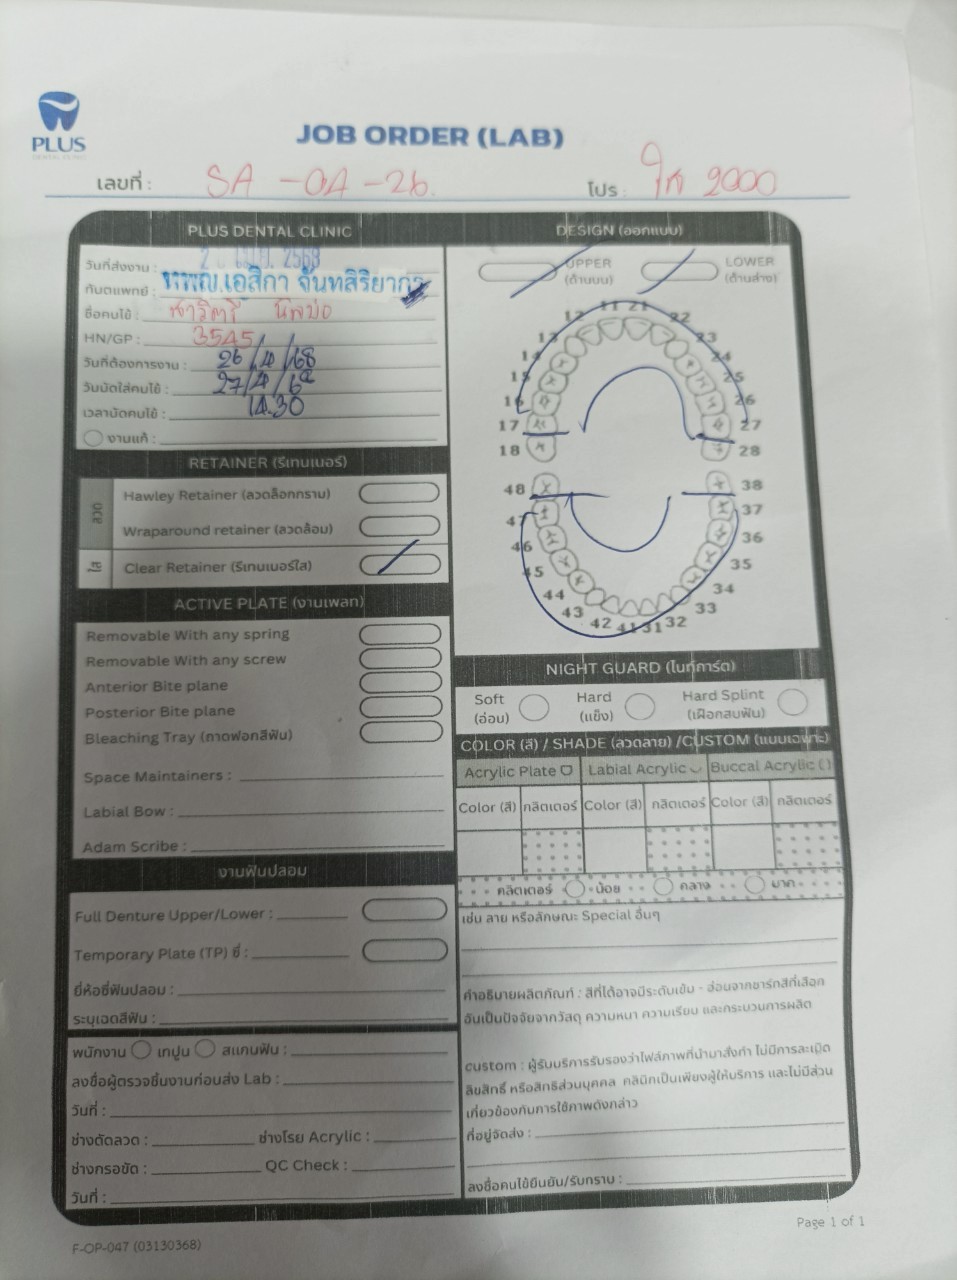 PLUS
DENTAL CLINIC
JOB ORDER (LAB)
เลขที่ : SA -04 -26.
โปร : ใส 2000
PLUS DENTAL CLINIC
วันที่ส่งงาน : 2 เม.ย. 2568
ทันตแพทย์ : ทพญ.เอสิกา จันทสิริยากร
ชื่อคนไข้ : สาวิตรี
HN/GP : 3545
วันที่ต้องการงาน : 26/4/68
วันนัดใส่คนไข้ : 27/4/68
เวลานัดคนไข้ : 14.30
งานแก้ :
RETAINER (รีเทนเนอร์)
ลวด
Hawley Retainer (ลวดล็อกกราม)
Wraparound retainer (ลวดล้อม)
ใส
Clear Retainer (รีเทนเนอร์ใส)
ACTIVE PLATE (งานเพลท)
Removable With any spring
Removable With any screw
Anterior Bite plane
Posterior Bite plane
Bleaching Tray (ถาดฟอกสีฟัน)
Space Maintainers :
Labial Bow :
Adam Scribe :
งานฟันปลอม
Full Denture Upper/Lower :
Temporary Plate (TP) ซี่ :
ยี่ห้อซี่ฟันปลอม :
ระบุเฉดสีฟัน :
พนักงาน เทปูน สแกนฟัน :
ลงชื่อผู้ตรวจชิ้นงานก่อนส่ง Lab :
วันที่ :
ช่างดัดลวด : ช่างโรย Acrylic :
ช่างกรอขัด : QC Check :
วันที่ :
DESIGN (ออกแบบ)
UPPER (ด้านบน)
LOWER (ด้านล่าง)
12 11 21 22
13 23
14 24
15 25
16 26
17 27
18 28
48 38
47 37
46 36
45 35
44 34
43 33
42 41 31 32
NIGHT GUARD (ไนท์การ์ด)
Soft (อ่อน)
Hard (แข็ง)
Hard Splint (เฝือกสบฟัน)
COLOR (สี) / SHADE (ลวดลาย) /CUSTOM (แบบเฉพาะ)
Acrylic Plate Labial Acrylic Buccal Acrylic ( )
Color (สี) กลิตเตอร์ Color (สี) กลิตเตอร์ Color (สี) กลิตเตอร์
กลิตเตอร์ น้อย กลาง มาก
เช่น ลาย หรือลักษณะ Special อื่นๆ
คำอธิบายผลิตภัณฑ์ : สีที่ได้อาจมีระดับเข้ม - อ่อนจากชาร์ทสีที่เลือก
อันเป็นปัจจัยจากวัสดุ ความหนา ความเรียบ และกระบวนการผลิต
custom : ผู้รับบริการรับรองว่าไฟล์ภาพที่นำมาสั่งทำ ไม่มีการละเมิด
ลิขสิทธิ์ หรือสิทธิส่วนบุคคล คลินิกเป็นเพียงผู้ให้บริการ และไม่มีส่วน
เกี่ยวข้องกับการใช้ภาพดังกล่าว
ที่อยู่จัดส่ง :
ลงชื่อคนไข้ยืนยัน/รับทราบ :
Page 1 of 1
F-OP-047 (03130368)